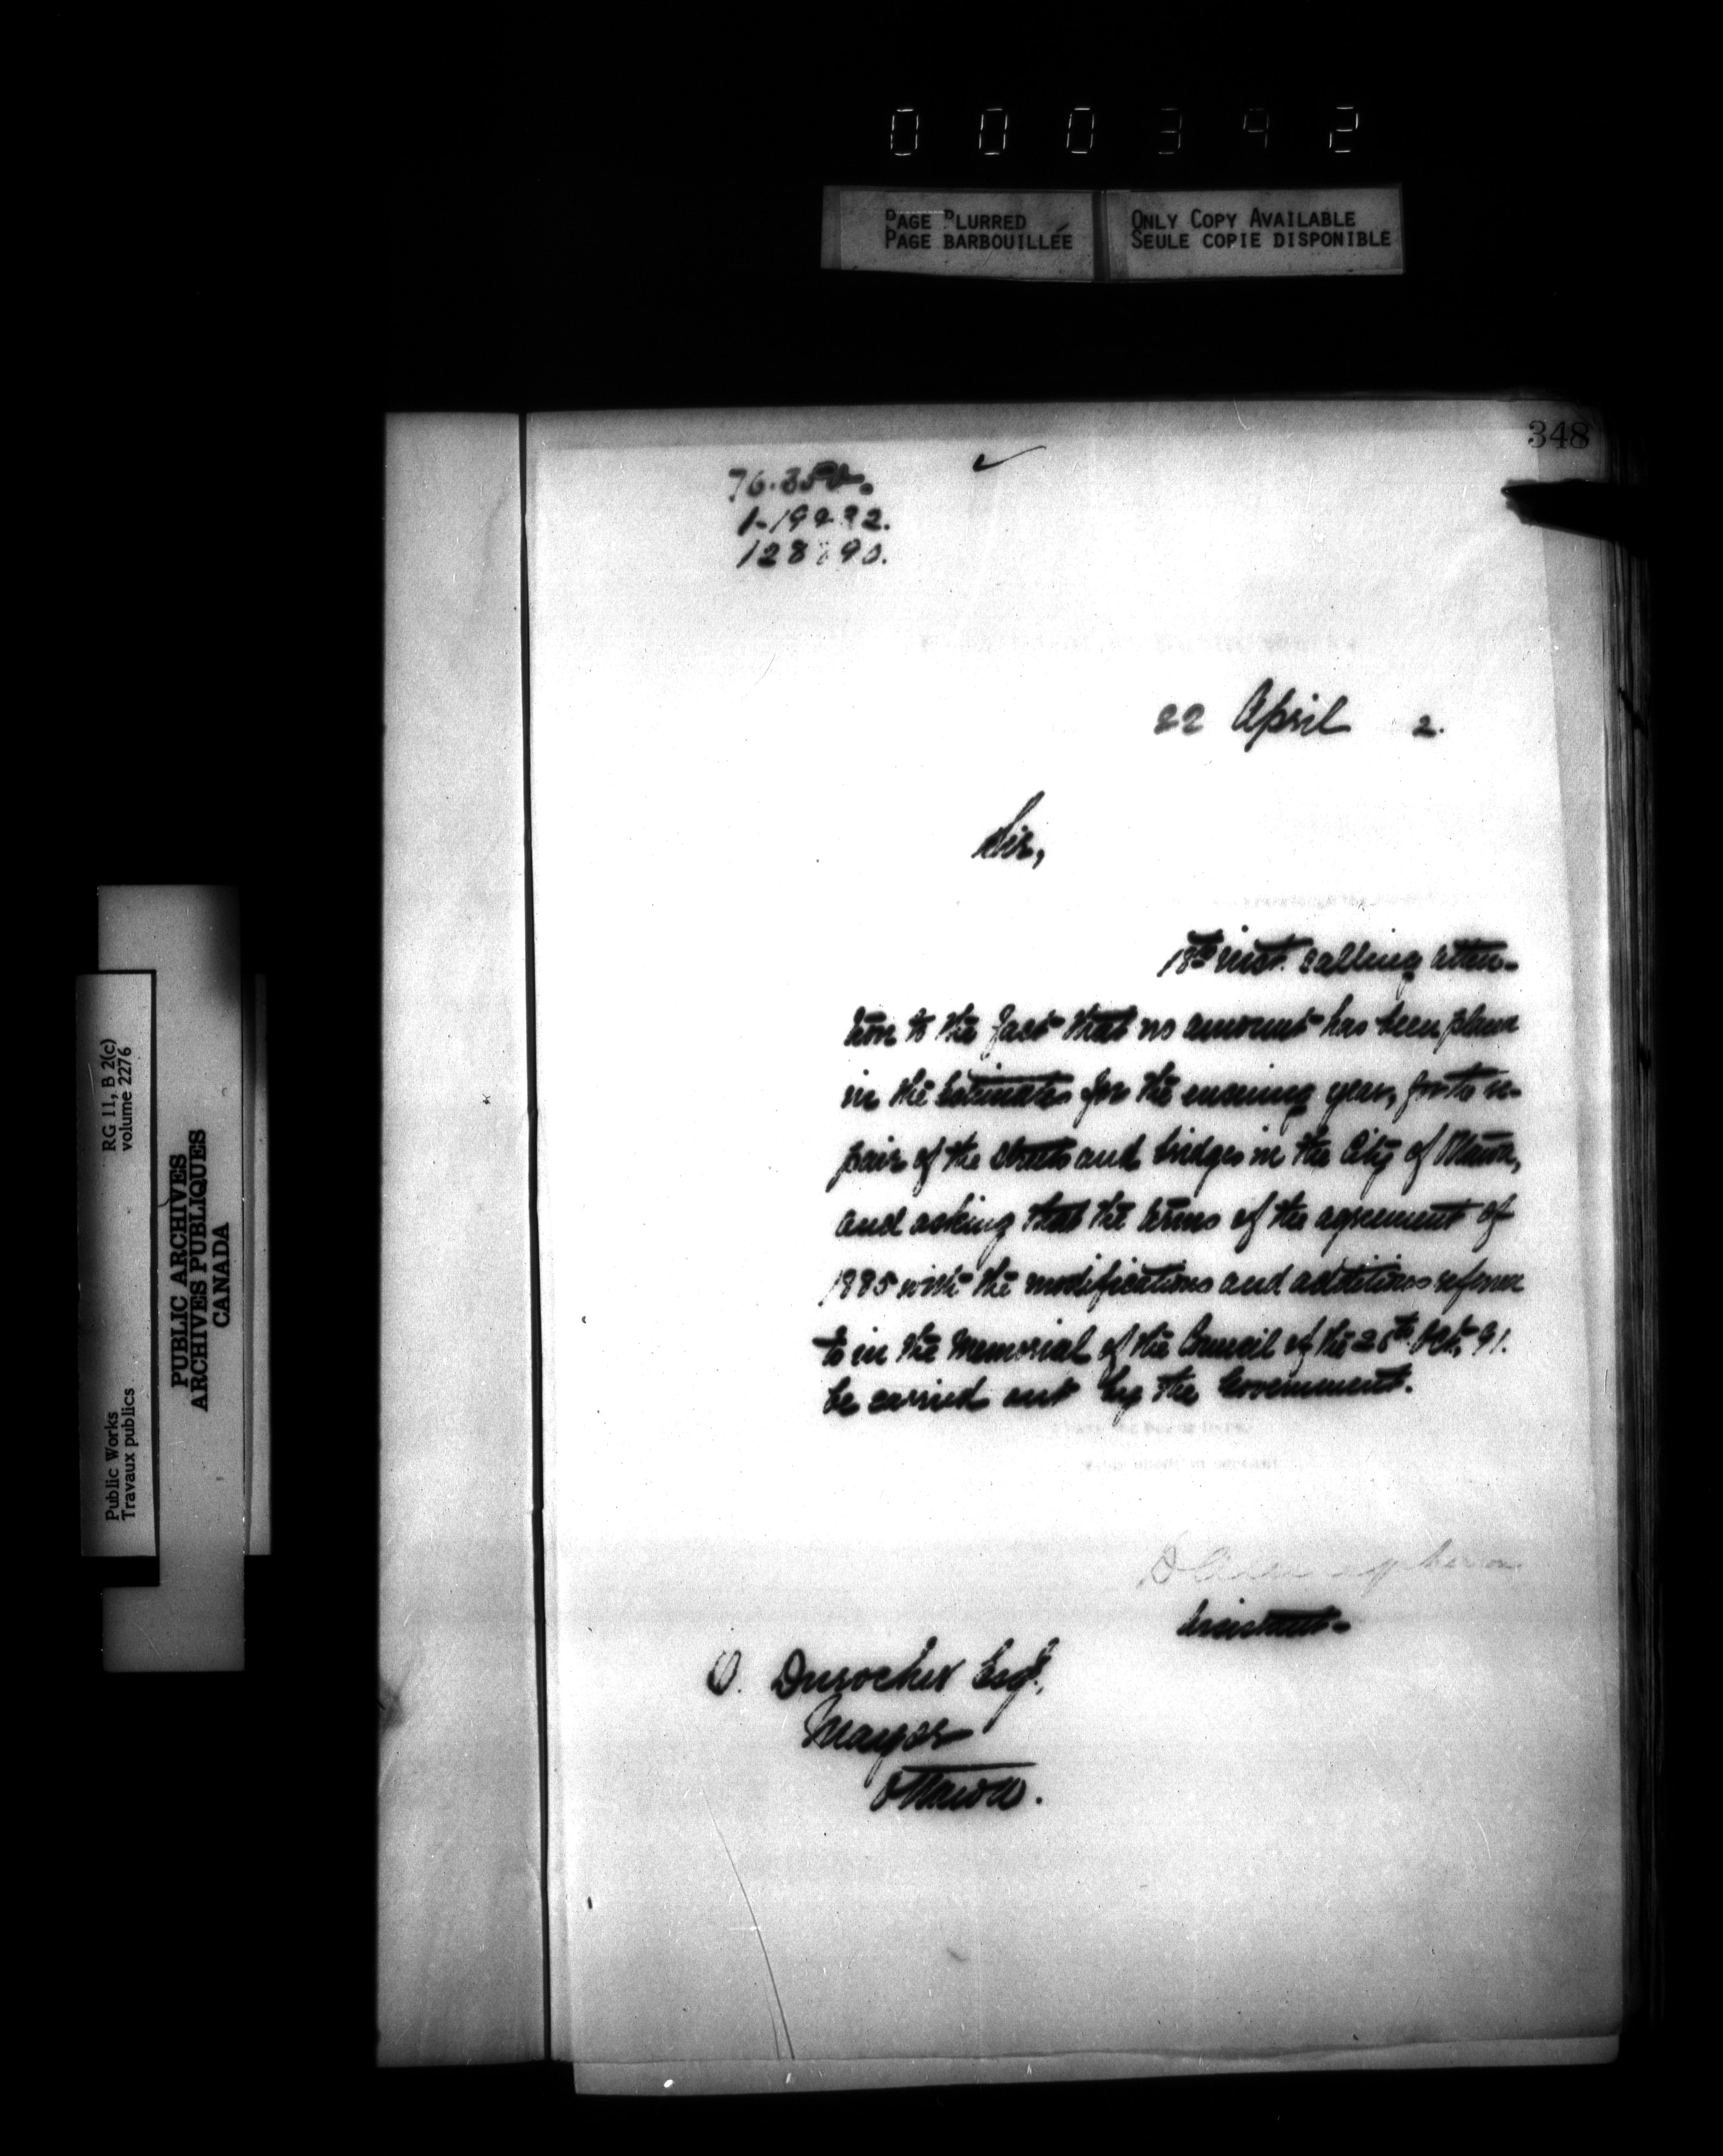 000342
PAGE BLURRED
PAGE BARBOUILLÉE
ONLY COPY AVAILABLE
SEULE COPIE DISPONIBLE
348
22 April 2.
Sir,
18th inst. calling atten-
tion to the fact that no amount has been placed
in the Estimates for the ensuing year, for the re-
pair of the streets and bridges in the City of Ottawa,
and asking that the terms of the agreement of
1885 with the modifications and additions referred
to in the Memorial of the Council of the Oct, 91.
be carried out by the Government.
Assistant
O. Durocher Esq.,
Mayor
Ottawa.
Public Works
Travaux publics
RG 11, B 2(c)
volume 2276
PUBLIC ARCHIVES
ARCHIVES PUBLIQUES
CANADA